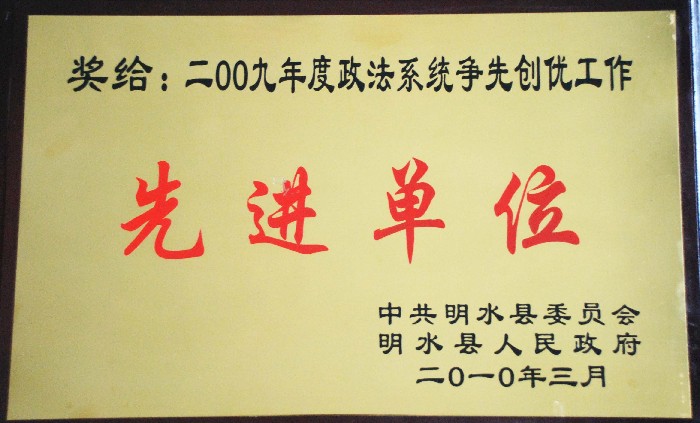 奖给：二00九年度政法系统争先创优工作
先进单位
中共明水县委员会
明水县人民政府
二0一0年三月